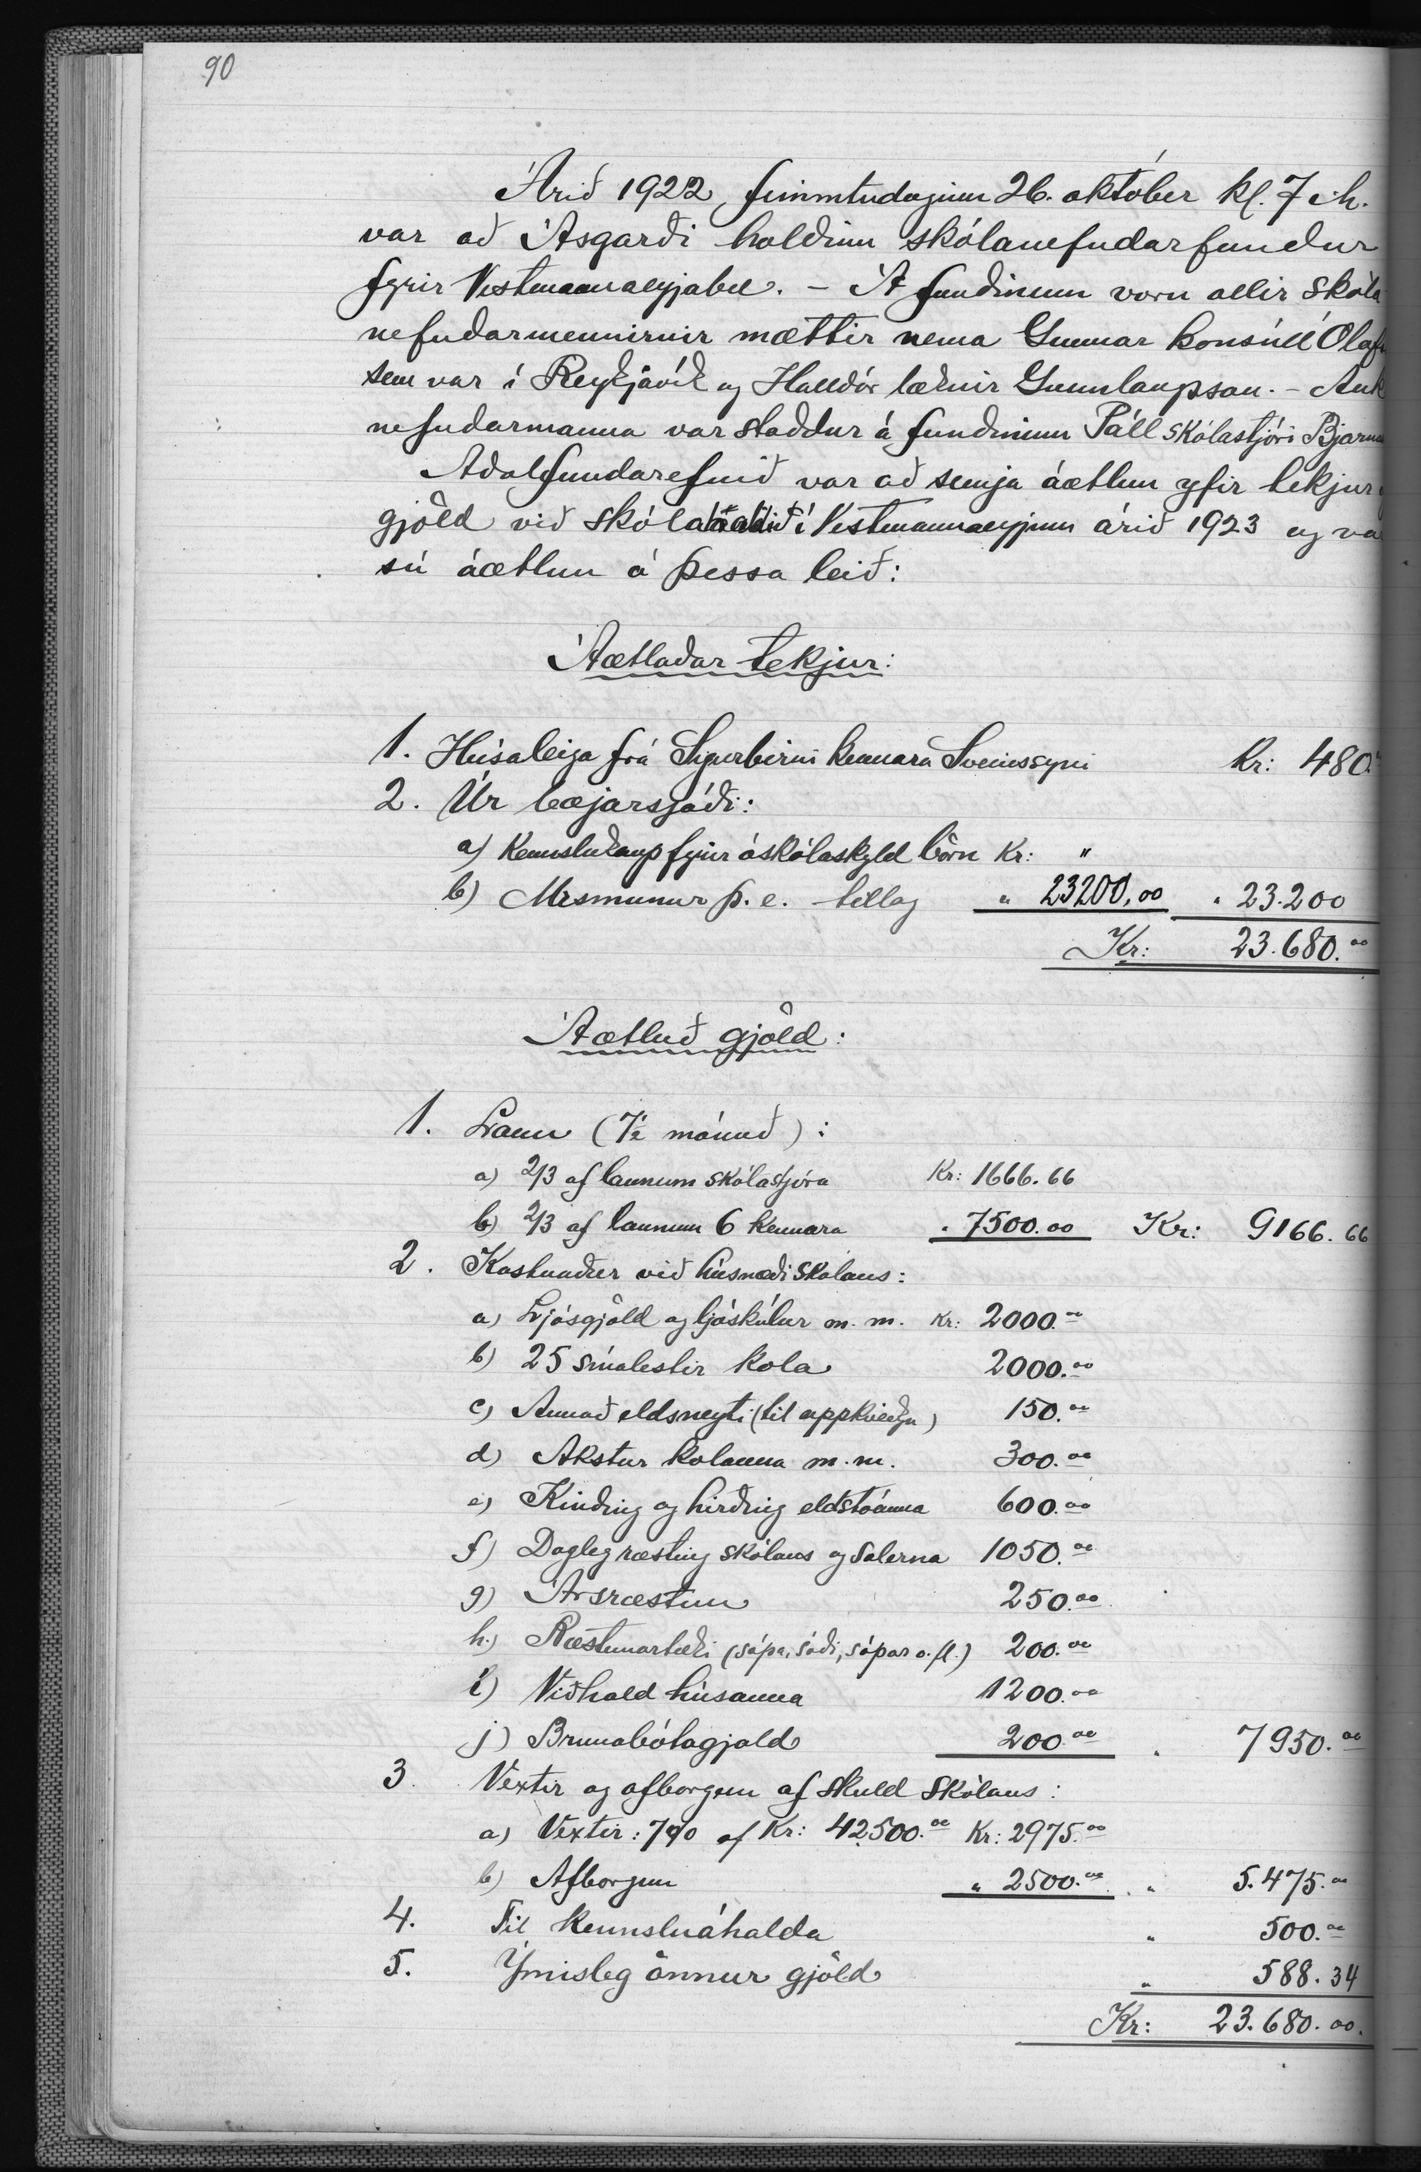 90
Árið 1922, fimmtudaginn 26. október kl. 7 e.h.
var að Ásgarði haldinn skólanefndarfundur
fyrir Vestmannaeyjabæ. - Á fundinum voru allir skóla
nefndarmennirnir mættir nema Gunnar konsúll Ólafs
sem var í Reykjavík og Halldór læknir Gunnlaugsson. - Auk
nefndarmanna var staddur á fundinum Páll skólastjóri Bjarna
Aðalfundarefnið var að semja áætlun yfir tekjur
gjöld við skóla í Vestmannaeyjum árið 1923 og va
sú áætlun á þessa leið:
Áætlaðar tekjur:
1. Húsaleiga frá Sigurbirni kennara Sveinssyni Kr: 480.
2. Úr bæjarsjóði:
a) Kennslukaup fyrir óskólaskyld börn Kr: "
b) Mismunur þ. e. tillag " 23200,00 " 23.200
Kr: 23.680.00
Áætluð gjöld:
1. Laun (7½ mánuð):
a) 2/3 af launum skólastjóra Kr: 1666.66
b) 2/3 af launum 6 kennara " 7500.00 Kr: 9166.66
2. Kostnaður við húsnæði skólans:
a) Ljósgjöld og ljóskúlur m. m. Kr: 2000.00
b) 25 smálestir kola 2000.00
c) Annað eldsneyti (til uppkveikju) 150.00
d) Akstur kolanna m. m. 300.00
e) Kinding og hirðing eldstóanna 600.00
f) Dagleg ræsting skólans og salerna 1050.00
g) Ársræstun 250.00
h.) Ræstunartæki (sápa, sódi, sópar o. fl.) 200.00
i) Viðhald húsanna 1200.00
j) Brunabótagjald 200.00 " 7950.00
3. Vextir og afborgun af skuld skólans:
a) Vextir: 7% af Kr: 42.500.00 Kr: 2975.00
b) Afborgun " 2500.00 " 5.475.00
4. Til kennsluáhalda " 500.00
5. Ýmisleg önnur gjöld " 588.34
Kr: 23.680.00.